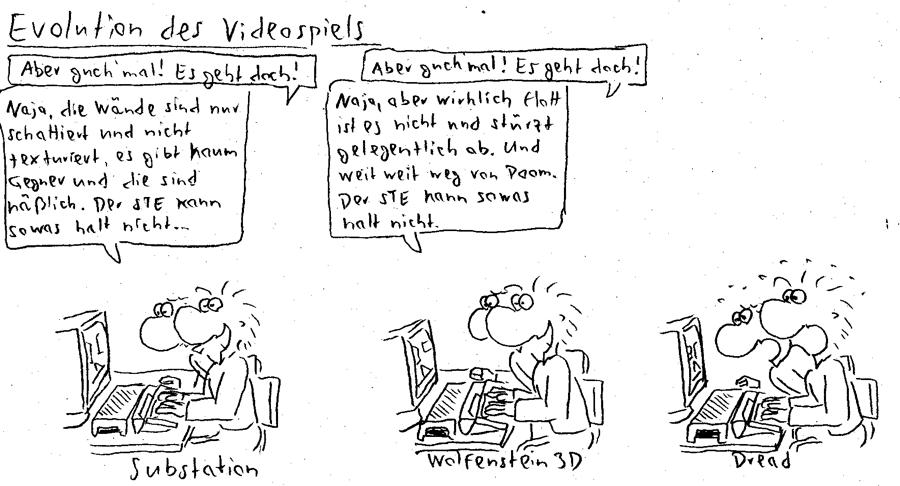 Evolution des Videospiels
Aber guck mal! Es geht doch!
Naja, die Wände sind nur
schattiert und nicht
texturiert, es gibt kaum
Gegner und die sind
häßlich. Der STE kann
sowas halt nicht...
Aber guck mal! Es geht doch!
Naja, aber wirklich flott
ist es nicht und stürzt
gelegentlich ab. Und
weit weit weg von Doom.
Der STE kann sowas
halt nicht.
Substation
Wolfenstein 3D
Dread